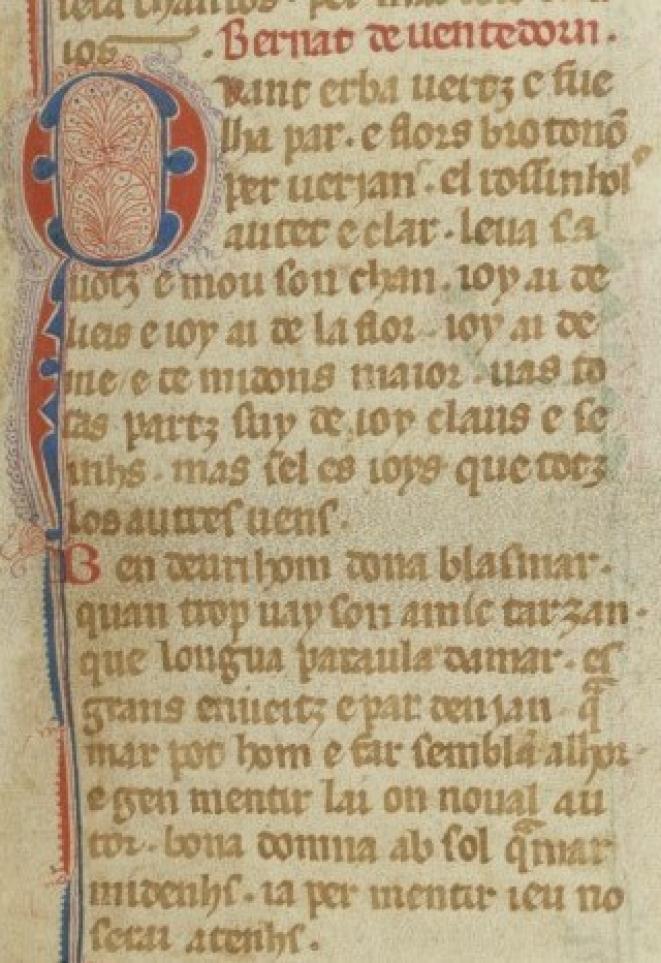 ios . Bernat de uentedorn .
Quant erba uertz e fue
lha par . e flors brotonō
per uerian . el rossinhol
autet e clar . leua sa
uotz e mou son chan . ioy ai de
lieis e ioy ai de la flor . ioy ai de
me / e de midons maior . uas to
tas partz suy de ioy claus e se
inhs . mas sel es ioys que totz
los autres uens .
B en deuri hom dona blasmar .
quan trop uay son amic tarzan .
que longua paraula damar . es
grans enueitz e par denian . q̄
mar pot hom e far sembla alhor
e gen mentir lai on noual au
tor . bona domna ab sol q̄mar
midenhs . ia per mentir ieu no
serai atenhs .